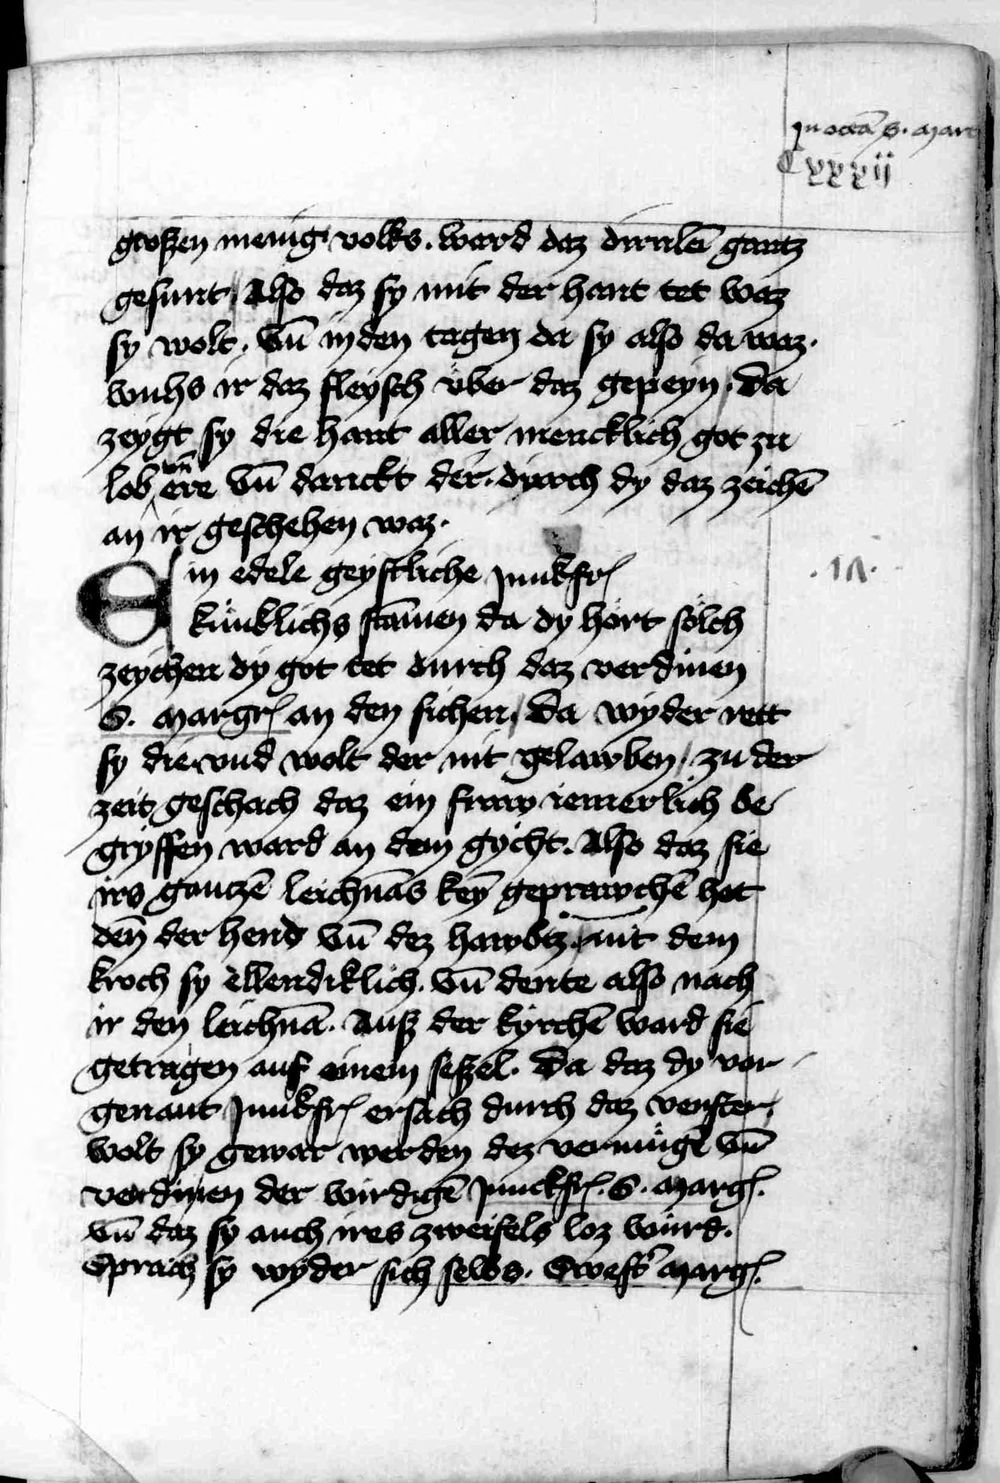 In octa S. Mar
Cxxxij
groszen menig volks. ward daz dirnlē gantz
gesunt / Also daz sy mit der hant tet waz
sy wolt. Vn̄ in den tagen da sy also da waz.
wuhs ir daz fleysch vber daz gepeyn / Da
zeygt sy die hant aller mencklich got zu
lob vn̄ ere Vn̄ danckt der. dyrch dy daz zeichē
an ir geschehen waz.
Ein edele geystliche Junkfr
.ix.
kúnklichs stāmen da dy hört sölch
zeychen dy got tet durch daz verdinen
S. Margr an den sichen / Da wyder rett
sy die vnd wolt der nit gelawben / zu der
zeit geschach daz ein fraw iemerlich be
gryffen ward an dem gycht. Also daz sie
irs gantzē leichnās keȳ geprawchē het
den̄ der hend Vn̄ dez hawbtz. mit dem
kroch sy ellendiklich. Vn̄ dente also nach
ir den leichnā. Ausz der kyrchē ward sie
getragen auf einem seszel. Da daz dy vor
genant Junkfr ersach durch daz venster,
wolt sy gewar werden dez vermügē vn̄
verdinen der wirdigē Junckfr. S. Marg.
Vn̄ daz sy auch ires zweifels loz würd.
Sprach sy wyder sich selbs. Swest' Marg.